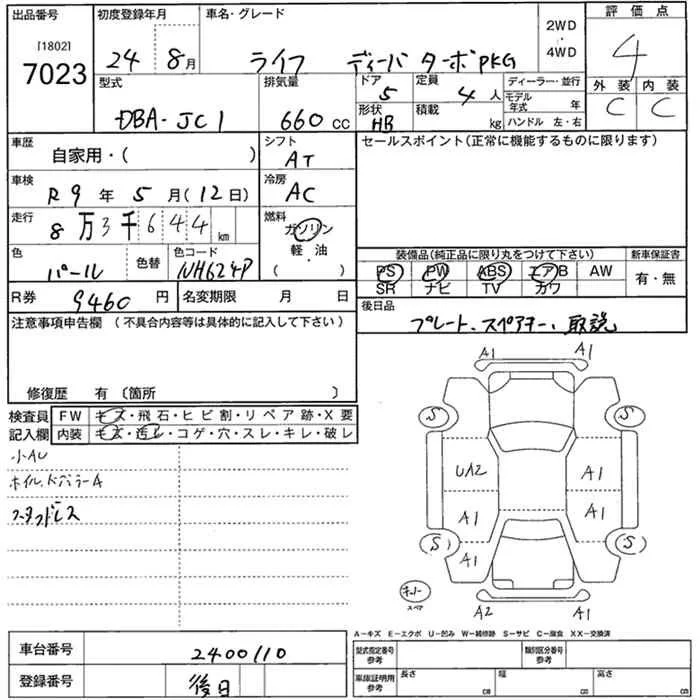 出品番号
[1802]
7023
初度登録年月
24 8月
車名・グレード
ライフ ディーバ ターボPKG
2WD
・
4WD
評価点
4
外装 内装
C C
型式
DBA-JC1
排気量
660 CC
ドア
5
形状
HB
定員
4人
積載
kg
ディーラー・並行
モデル年式 年
ハンドル 左・右
車歴
自家用・( )
シフト
AT
セールスポイント(正常に機能するものに限ります)
車検
R9年5月(12日)
冷房
AC
走行
8万3千644km
燃料
ガソリン
・
軽・油
( )
色
パール
色替
色コード
NH624P
装備品(純正品に限り丸をつけて下さい)
新車保証書
PS PW ABS エアB AW
SR ナビ TV カワ
有・無
R券 9460円
名変期限 月 日
後日品
プレート、スペアキー、取説
注意事項申告欄(不具合内容等は具体的に記入して下さい)
修復歴 有〔箇所 〕
検査員
記入欄
FW キズ・飛石・ヒビ割・リペア跡・X要
内装 キズ・汚レ・コゲ・穴・スレ・キレ・破レ
小AU
A1 A1
S S
UA2 A1
A1 A1
S A1 S
スペア
A2 A1
A-キズ E-エクボ U-凹み W-補修跡 S-サビ C-腐食 XX-交換済
車台番号
2400110
型式指定番号
参考
類別区分番号
参考
登録番号
後日
車庫証明用
参考
長さ cm
幅 cm
高さ cm